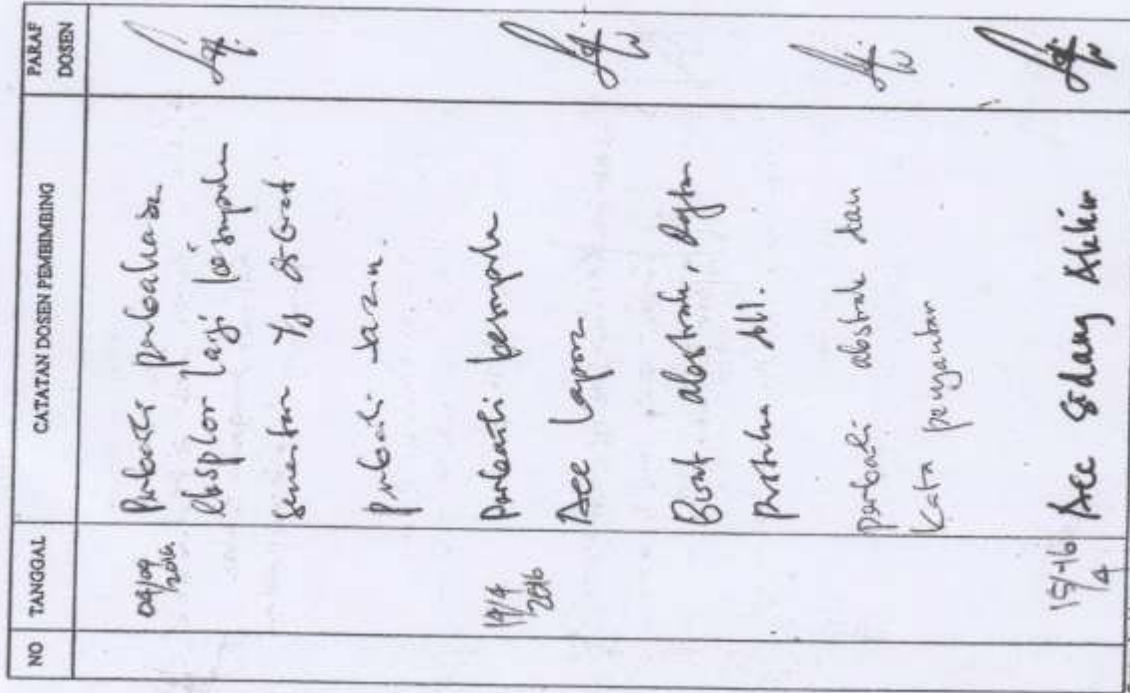 NO TANGGAL CATATAN DOSEN PEMBIMBING PARAF DOSEN
Perbaiki pembahasan
Eksplor lagi kesimpulan
Perbaiki
14/4 2016 Perbaiki kesimpulan
Acc Lapora
Buat abstrak, Daftar
pustaka dll.
perbaiki abstrak dan
kata pengantar
15/4-16 Acc Sidang Akhir